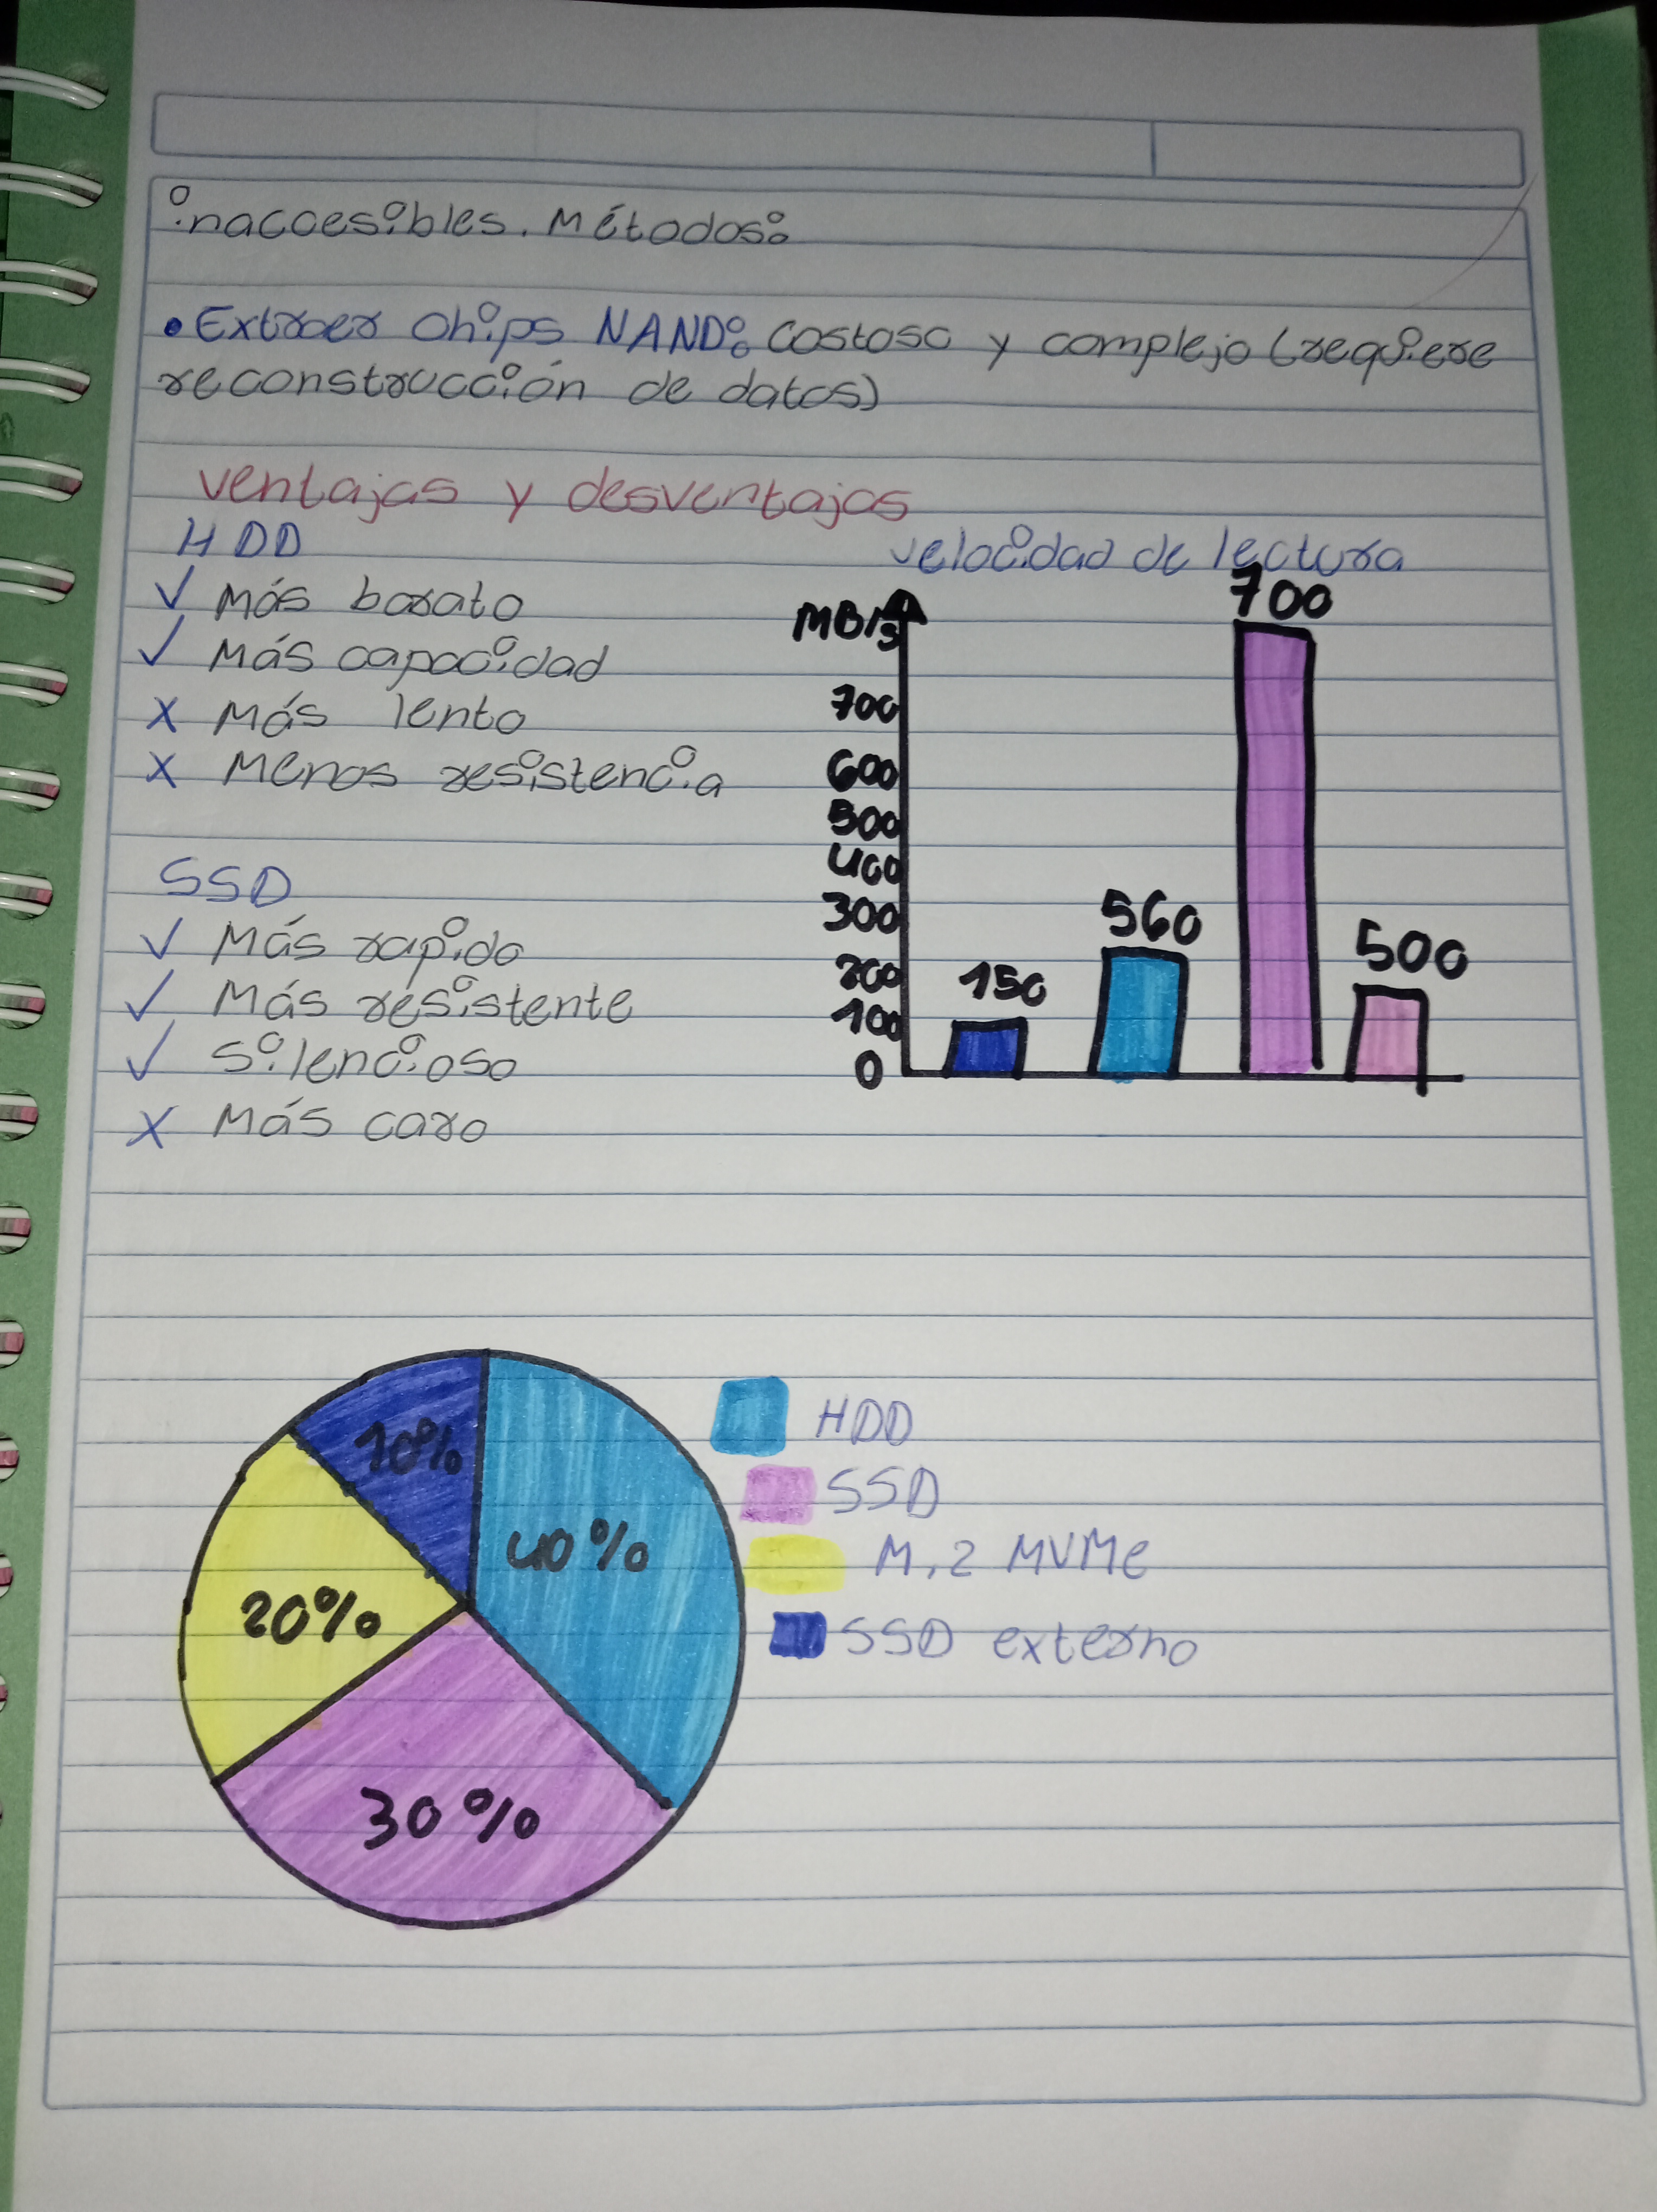 inaccesibles. Métodos:
• Extraer chips NAND: Costoso y complejo (requiere
reconstrucción de datos)
ventajas y desventajas
HDD
✓ Más barato
✓ Más capacidad
x Más lento
x Menos resistencia
SSD
✓ Más rapido
✓ Más resistente
✓ Silencioso
x Más caro
velocidad de lectura
MB/s
700
600
500
400
300
200
100
0
150
560
700
500
10%
40%
20%
30%
HDD
SSD
M.2 MVMe
SSD externo